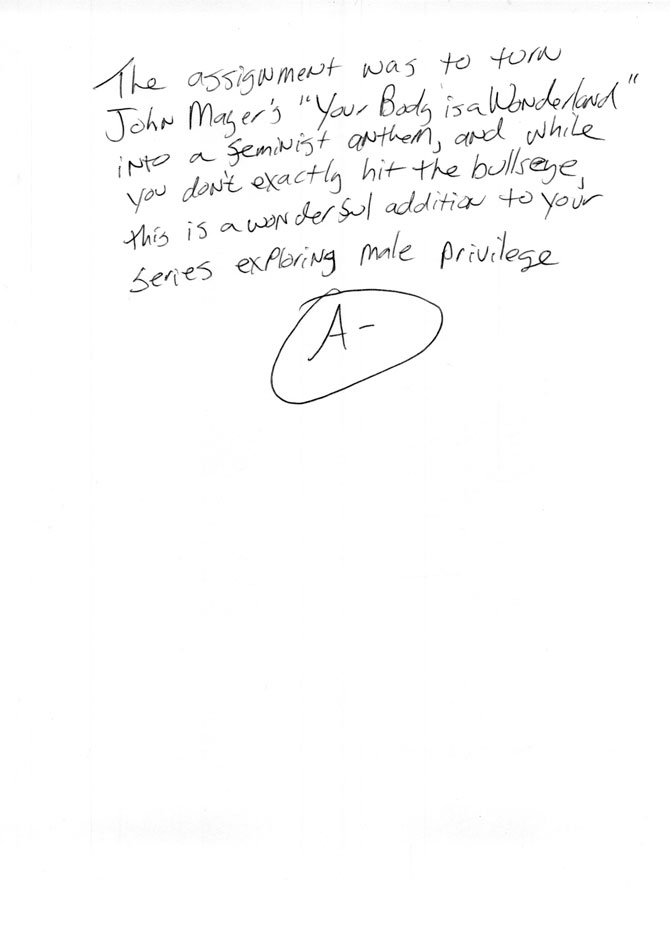 The assignment was to turn
John Mayer's "Your Body is a Wonderland"
into a feminist anthem, and while
you don't exactly hit the bullseye,
this is a wonderful addition to your
series exploring male privilege
A-